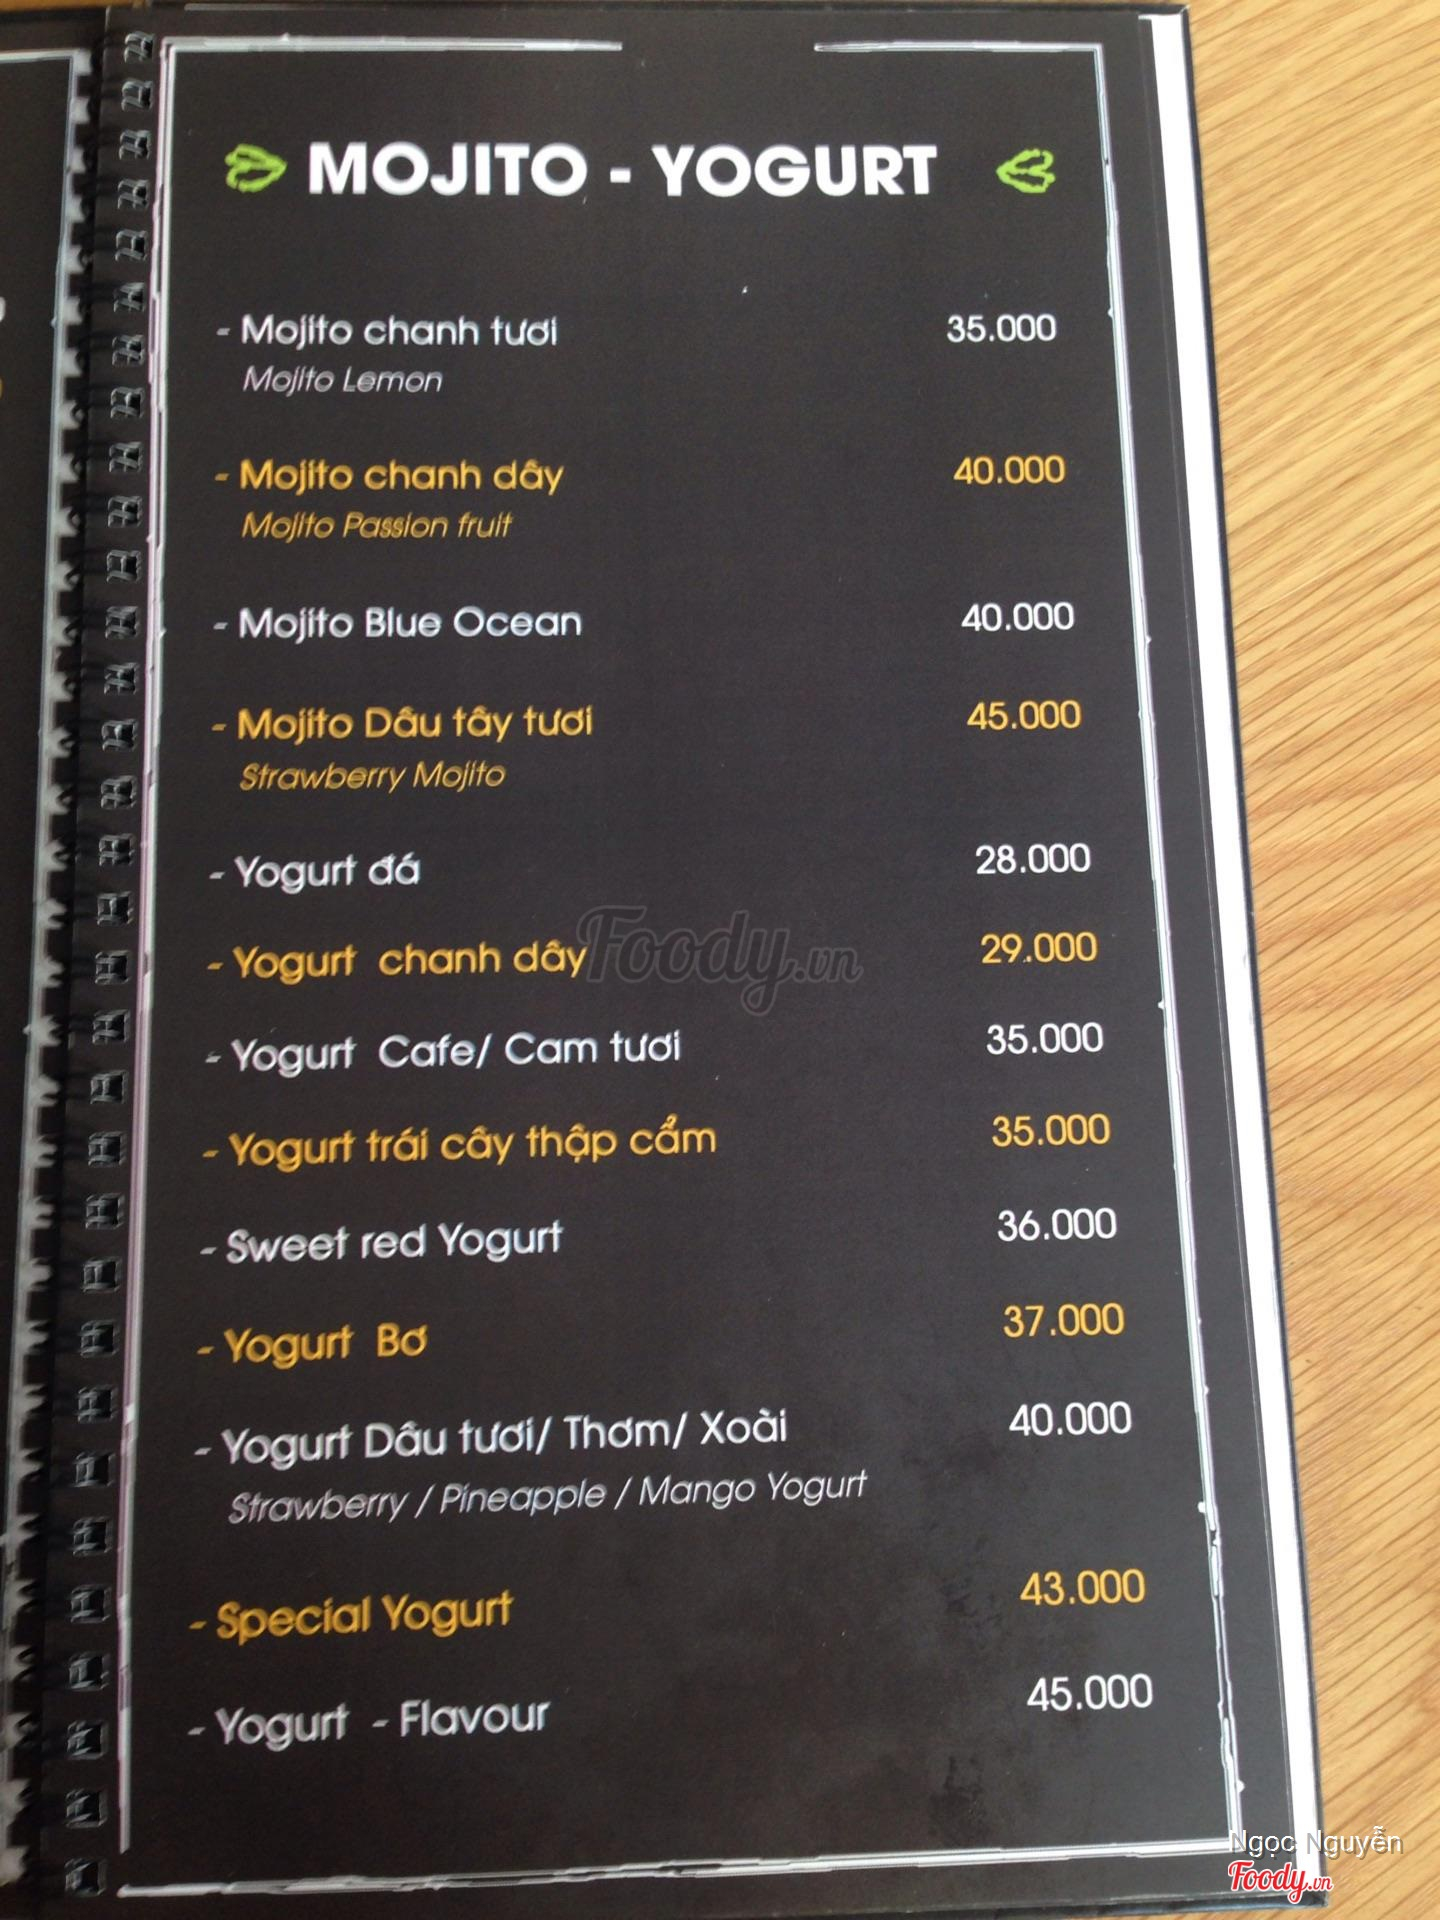 MOJITO - YOGURT
- Mojito chanh tươi 35.000
Mojito Lemon
- Mojito chanh dây 40.000
Mojito Passion fruit
- Mojito Blue Ocean 40.000
- Mojito Dâu tây tươi 45.000
Strawberry Mojito
- Yogurt đá 28.000
- Yogurt chanh dây 29.000
Foody.vn
- Yogurt Cafe/ Cam tươi 35.000
- Yogurt trái cây thập cẩm 35.000
- Sweet red Yogurt 36.000
- Yogurt Bơ 37.000
- Yogurt Dâu tươi/ Thơm/ Xoài 40.000
Strawberry / Pineapple / Mango Yogurt
- Special Yogurt 43.000
- Yogurt - Flavour 45.000
Ngọc Nguyễn
Foody.vn